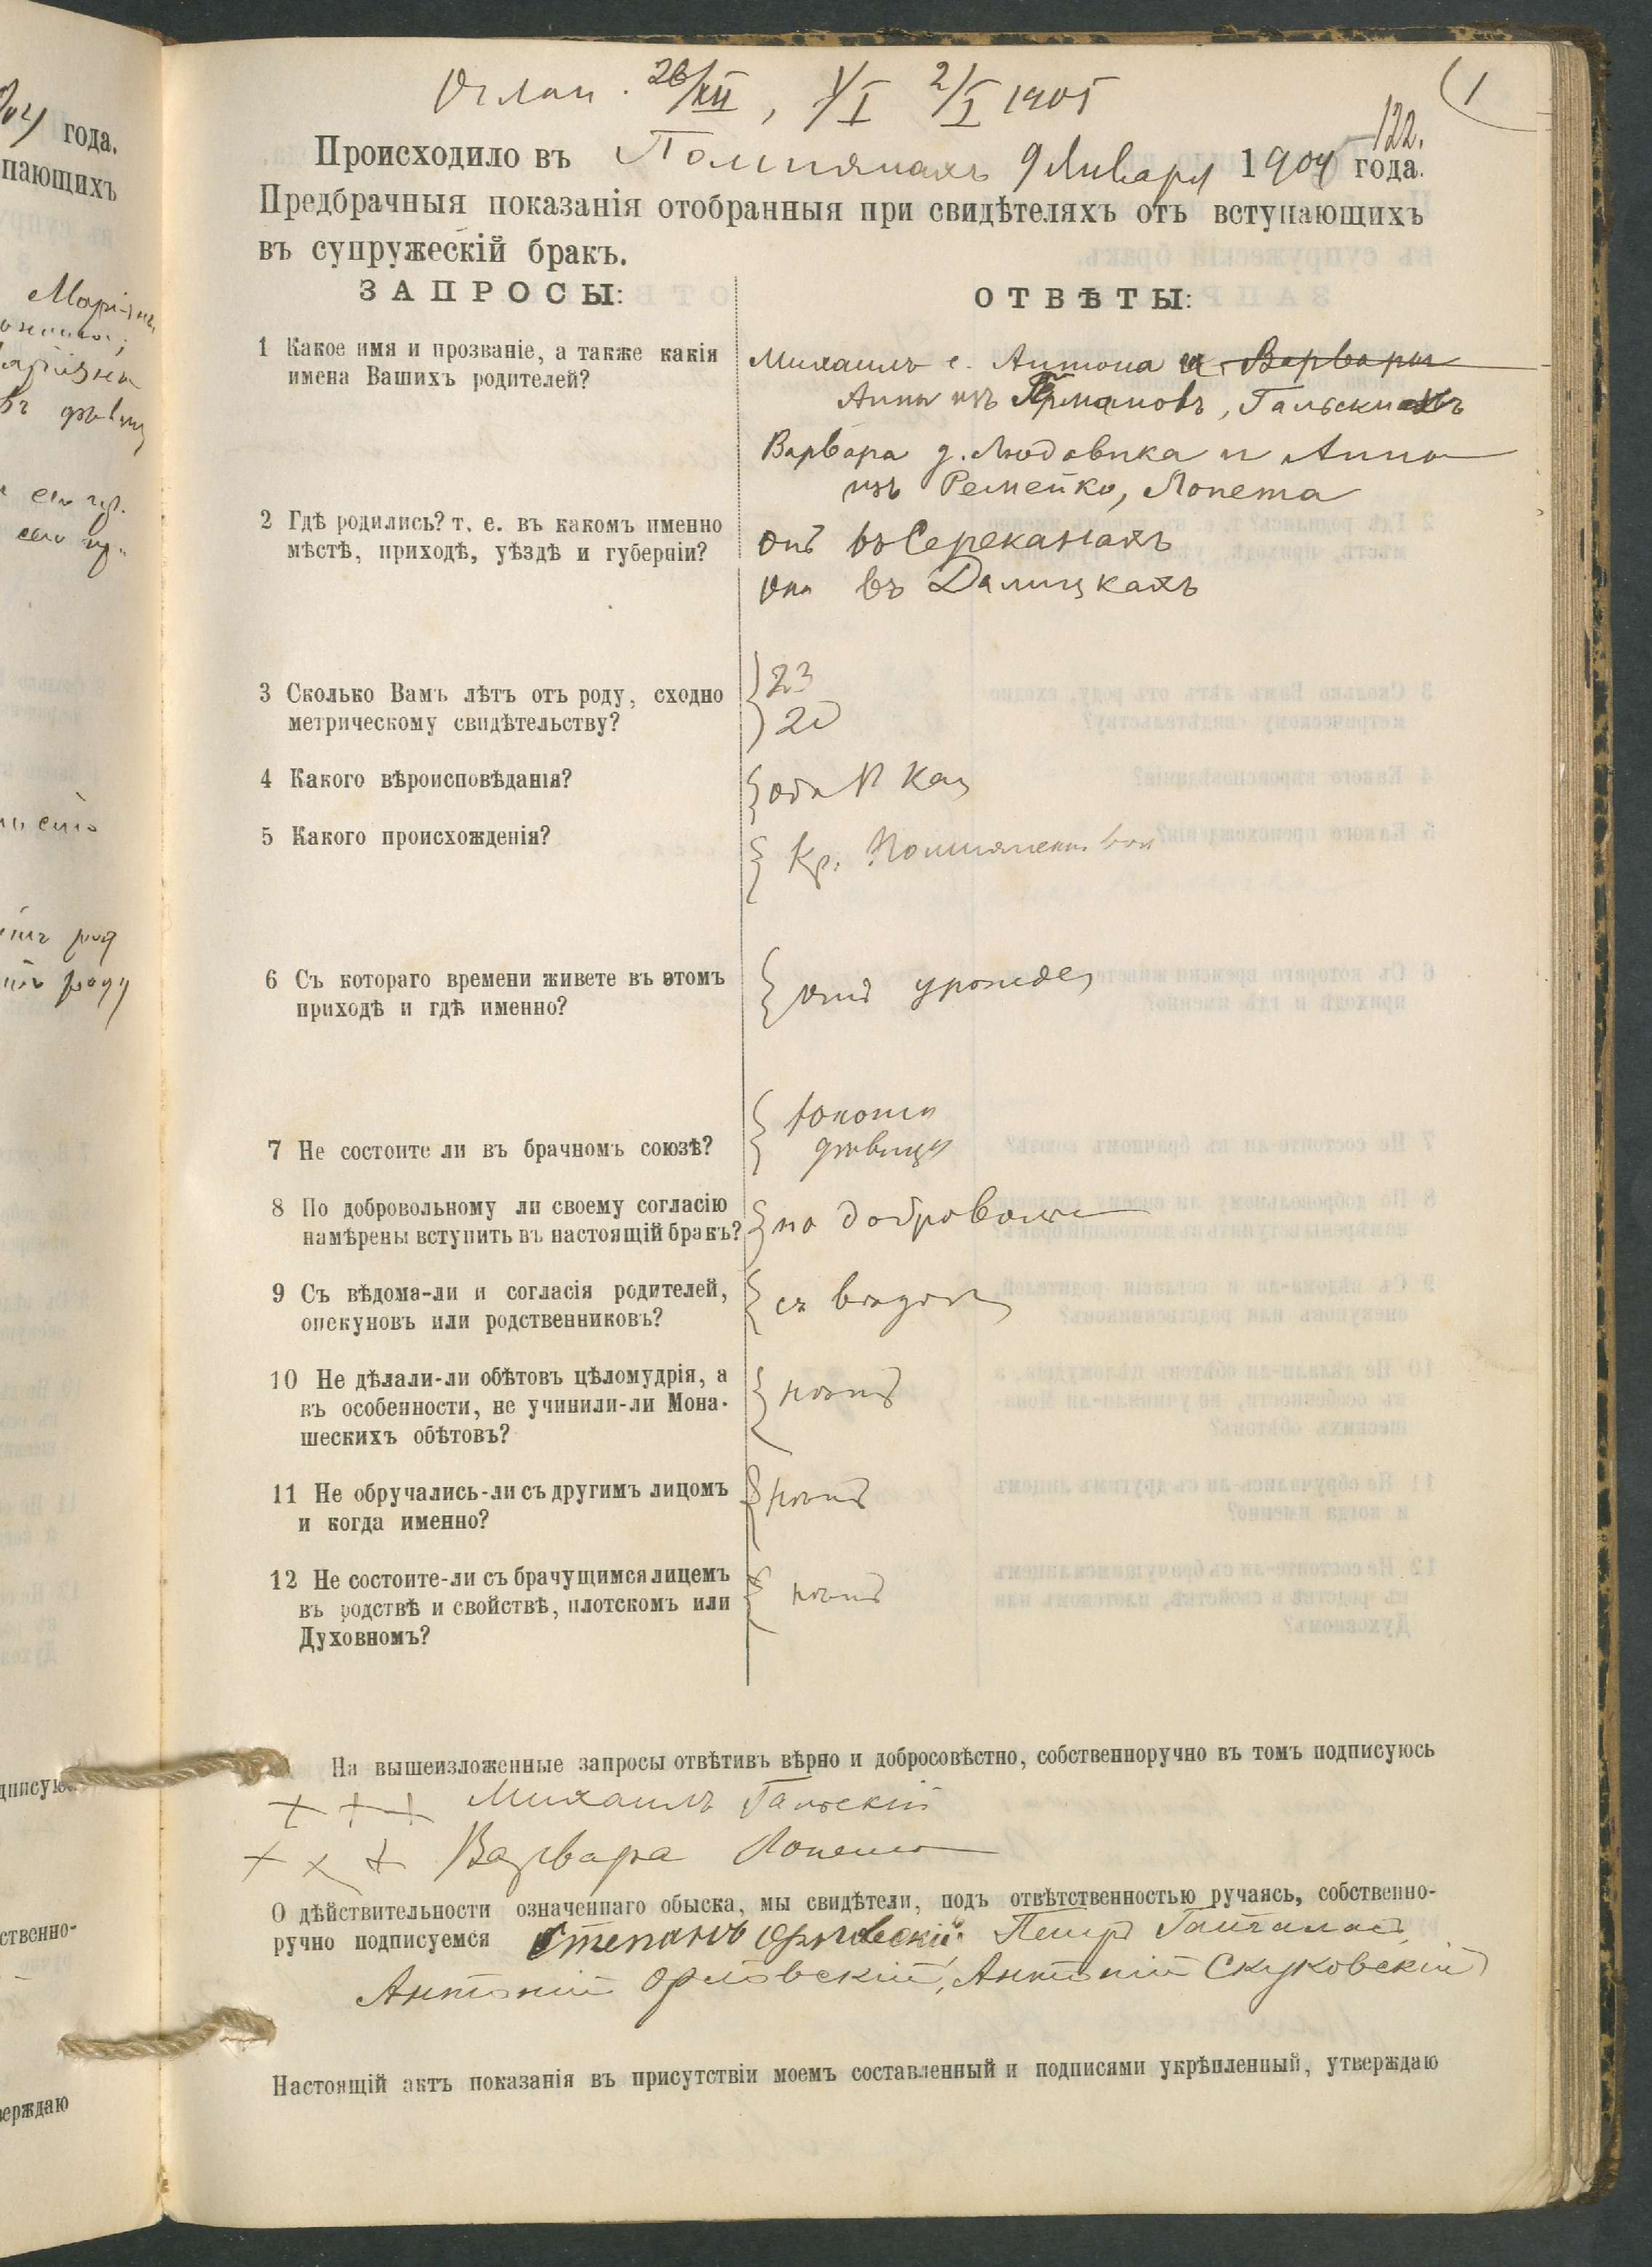 Оглаш. 26/XII, 1/I 2/I 1905
122.
Происходило въ Помпянахъ 9 Января 1904 года.
Предбрачныя показанія отобранныя при свидѣтеляхъ отъ вступающихъ
въ супружескій бракъ.
ЗАПРОСЫ:
ОТВѢТЫ:
1 Какое имя и прозваніе, а также какія
имена Вашихъ родителей?
Михаилъ с. Антона и Варвары
Анны изъ Германовъ, Гальски
Варвара д. Людовика и Анны
изъ Ремейко, Лопета
2 Гдѣ родились? т. е. въ какомъ именно
мѣстѣ, приходѣ, уѣздѣ и губерніи?
онъ въ Середканахъ
она въ Далицкахъ
3 Сколько Вамъ лѣтъ отъ роду, сходно
метрическому свидѣтельству?
23
20
4 Какого вѣроисповѣданія?
оба Р Кац
5 Какого происхожденія?
Кр. Помпянской вол
6 Съ котораго времени живете въ этомъ
приходѣ и гдѣ именно?
отъ урожде
7 Не состоите ли въ брачномъ союзѣ?
юноша
дѣвица
8 По добровольному ли своему согласію
намѣрены вступить въ настоящій бракъ?
по доброволь
9 Съ вѣдома-ли и согласія родителей,
опекуновъ или родственниковъ?
съ вѣдома
10 Не дѣлали-ли обѣтовъ цѣломудрія, а
въ особенности, не учинили-ли Мона-
шескихъ обѣтовъ?
нѣтъ
11 Не обручались-ли съ другимъ лицомъ
и когда именно?
нѣтъ
12 Не состоите-ли съ брачущимся лицемъ
въ родствѣ и свойствѣ, плотскомъ или
Духовномъ?
нѣтъ
На вышеизложенные запросы отвѣтивъ вѣрно и добросовѣстно, собственноручно въ томъ подписуюсь
+ + + Михаилъ Гальскій
+ + + Варвара Лопета
О дѣйствительности означеннаго обыска, мы свидѣтели, подъ отвѣтственностью ручаясь, собственно-
ручно подписуемся Степанъ Орловскій Петръ Гайгалас
Антоній Орловскій, Антоній Скуковскій
Настоящій актъ показанія въ присутствіи моемъ составленный и подписями укрѣпленный, утверждаю